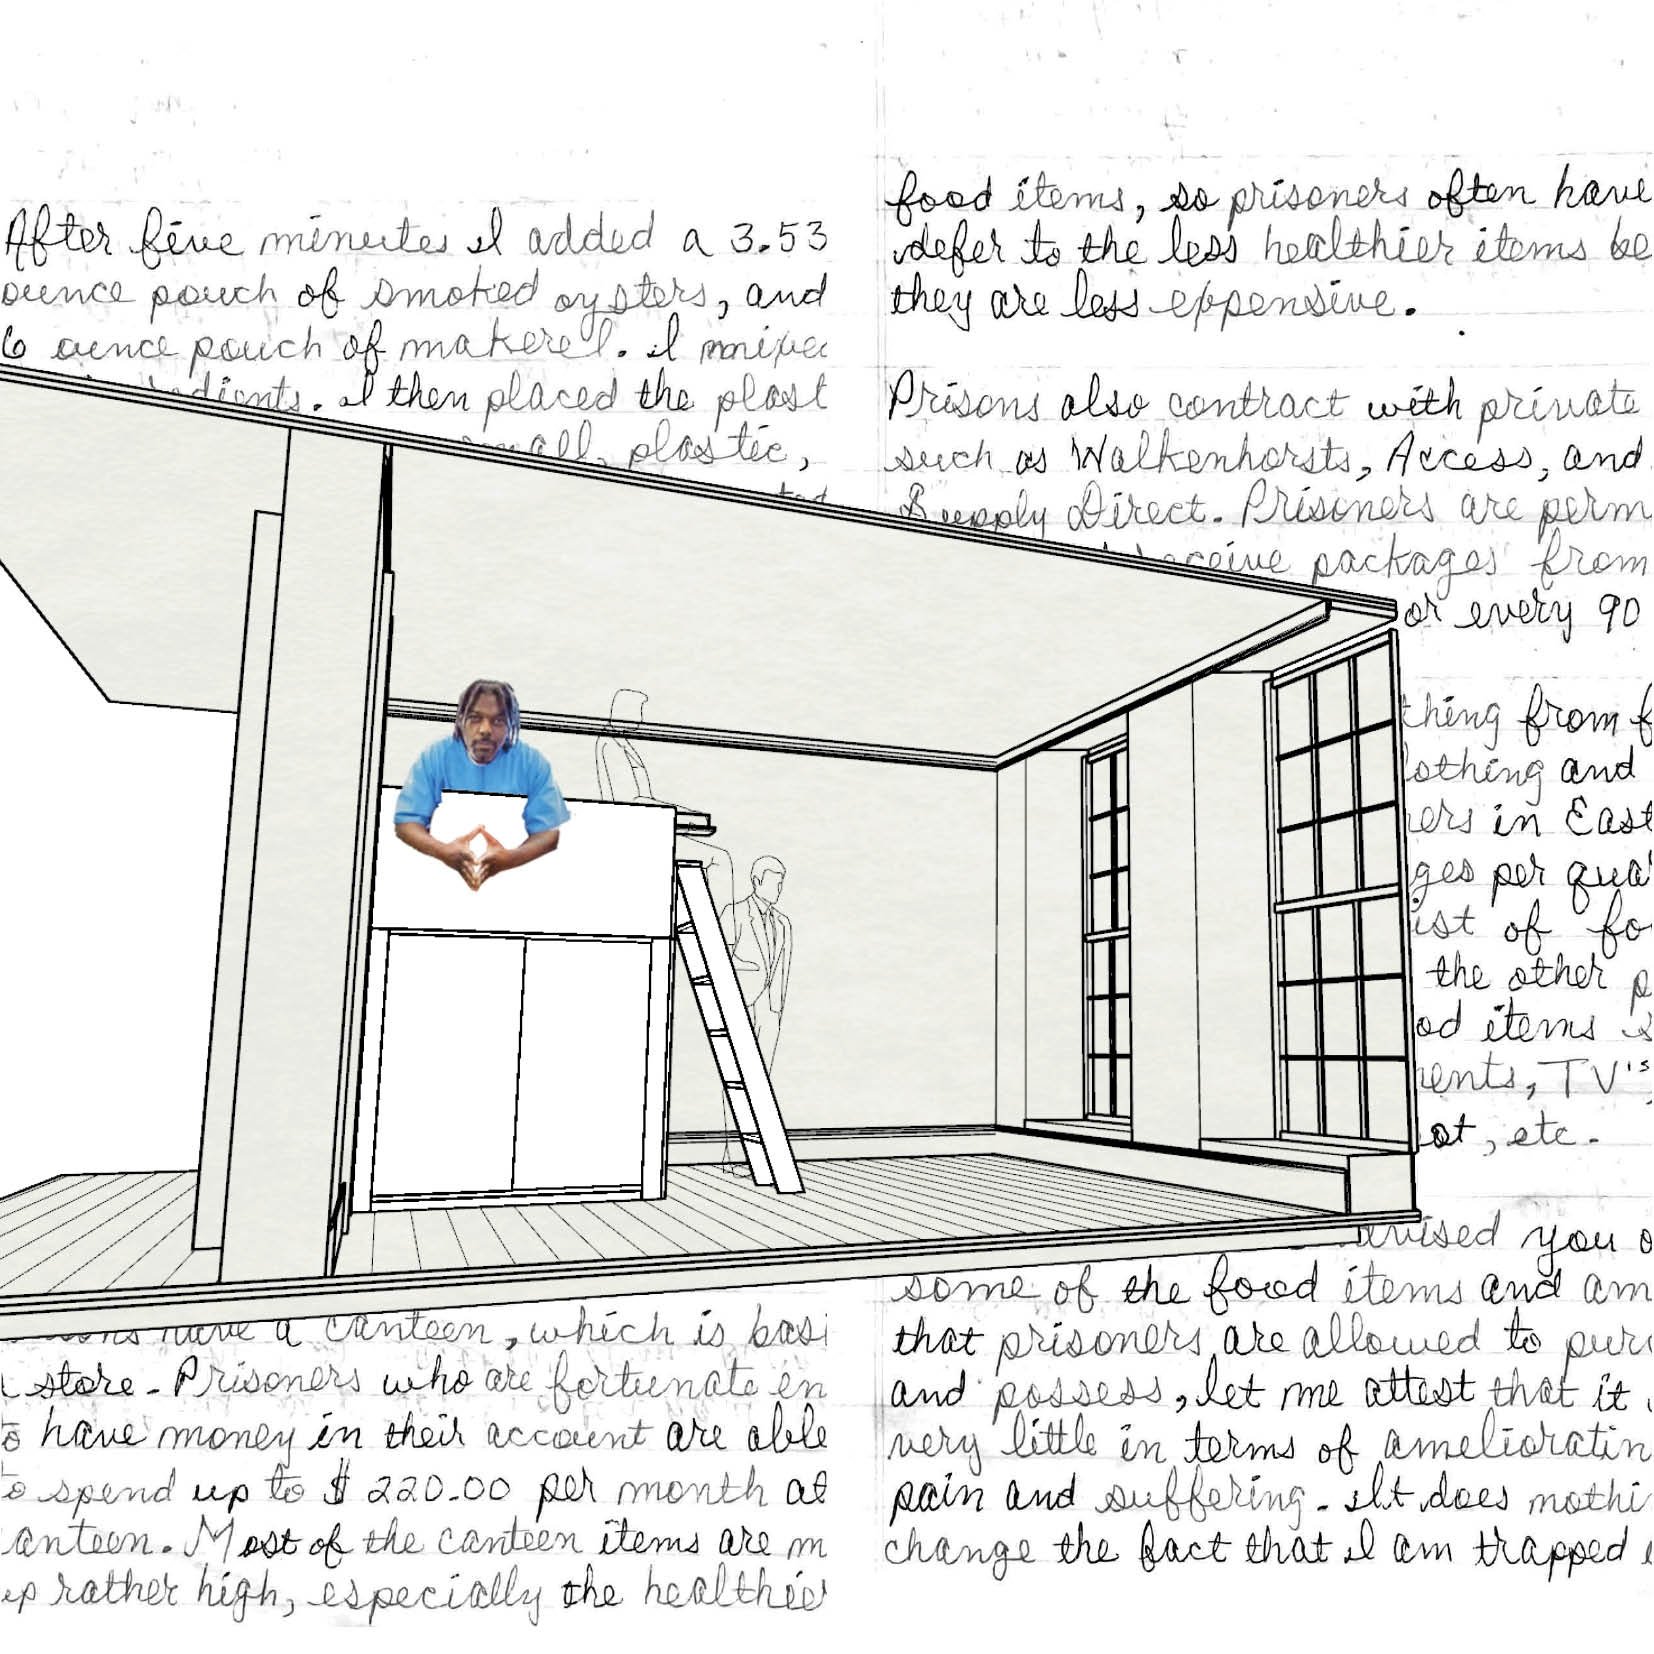 After five minutes I added a 3.53
ounce pouch of smoked oysters, and
6 ounce pouch of makerel. I mixed
I then placed the plast
plastic,
have a canteen, which is basi
store. Prisoners who are fortunate en
to have money in their account are able
to spend up to $220.00 per month at
anteen. Most of the canteen items are m
up rather high, especially the healthier
food items, so prisoners often have
defer to the less healthier items be
they are less expensive.
Prisons also contract with private
such as Walkenhorsts, Access, and
Supply Direct. Prisoners are perm
receive packages from
or every 90
thing from f
lothing and
ers in East
ges per qua
ist of fo
the other p
od items s
ents, TV's,
ot, etc.
vised you o
some of the food items and am
that prisoners are allowed to pur
and possess, let me attest that it
very little in terms of amelioratin
pain and suffering. It does nothi
change the fact that I am trapped